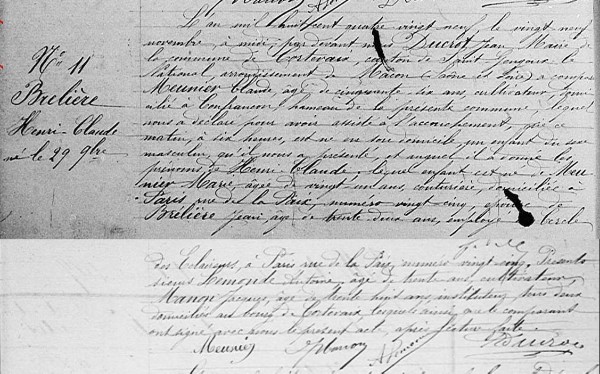 N° 11
Brelière
Henri-Claude
né le 29 9bre
L'an mil huit cent quatre vingt neuf, le vingt neuf
novembre, à midi, par devant nous Ducrot Jean Marie
la commune de Cortevaix, canton de Saint Gengoux le
National, arrondissement de Mâcon (Saône et Loire) a comparu
Meunier Claude, âgé de cinquante six ans, cultivateur, domi-
cilié à Confrançon, hameau de la présente commune, lequel
nous a déclaré pour avoir assisté à l'accouchement, que ce
matin, à six heures, est né en son domicile, un enfant du sexe
masculin, qu'il nous a présenté, et auquel il a donné les
prénoms de Henri Claude, lequel enfant est né de Meu-
nier Marie, âgée de vingt un ans, couturière, domiciliée à
Paris rue de la Paix, numéro vingt cinq, épouse de
Brelière Jean, âgé de trente deux ans, employé Cercle
des à Paris rue de la Paix, numéro vingt cinq, Présents
Antoine, âgé de trente ans, cultivateur,
Jacques, âgé de trente huit ans, instituteur, tous deux
domiciliés au bourg de Cortevaix lesquels ainsi que le comparant
ont signé avec nous le présent acte, après lecture faite
Meunier Ducrot